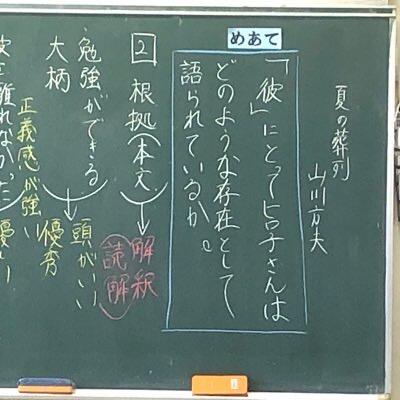 夏の葬列
山川方夫
めあて
「彼」にとってヒロ子さんは
どのような存在として
語られているか。
2 根拠(本文) → 解釈
読解
勉強ができる → 頭がいい
大柄 優秀
正義感が強い 優しい